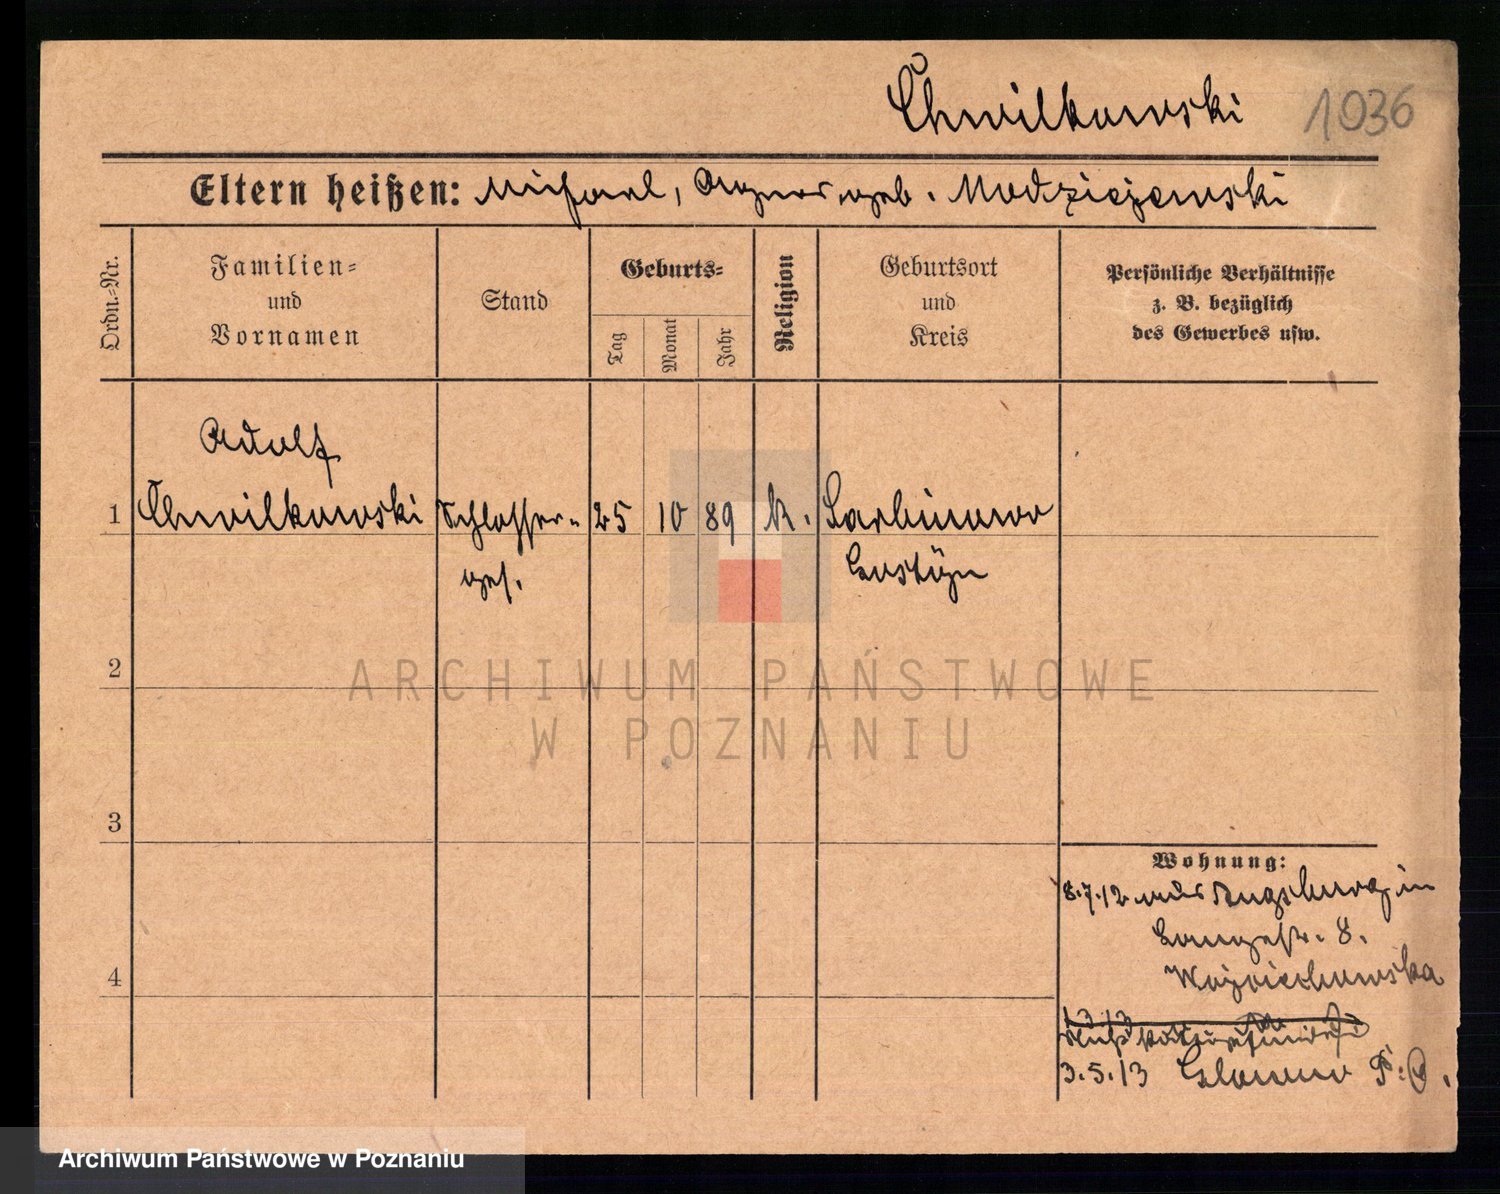 Chwilkowski 1036
Eltern heißen: Michael, Agnes, geb. Modziejewski
Ordn.-Nr.
Familien-
und
Vornamen
Stand
Geburts-
Tag
Monat
Jahr
Religion
Geburtsort
und
Kreis
Persönliche Verhältnisse
z. B. bezüglich
des Gewerbes usw.
Adolf
1 Chwilkowski Schlosser- 25 10 89 k. Sarbinowo
ges. Gostÿn
2
ARCHIWUM PAŃSTWOWE
W POZNANIU
3
Wohnung:
8.7.12 aus Augsburg in
Langestr. 8.
4 Wojciechowska
1.3.13
3.5.13 Glowno P: O.
Archiwum Państwowe w Poznaniu